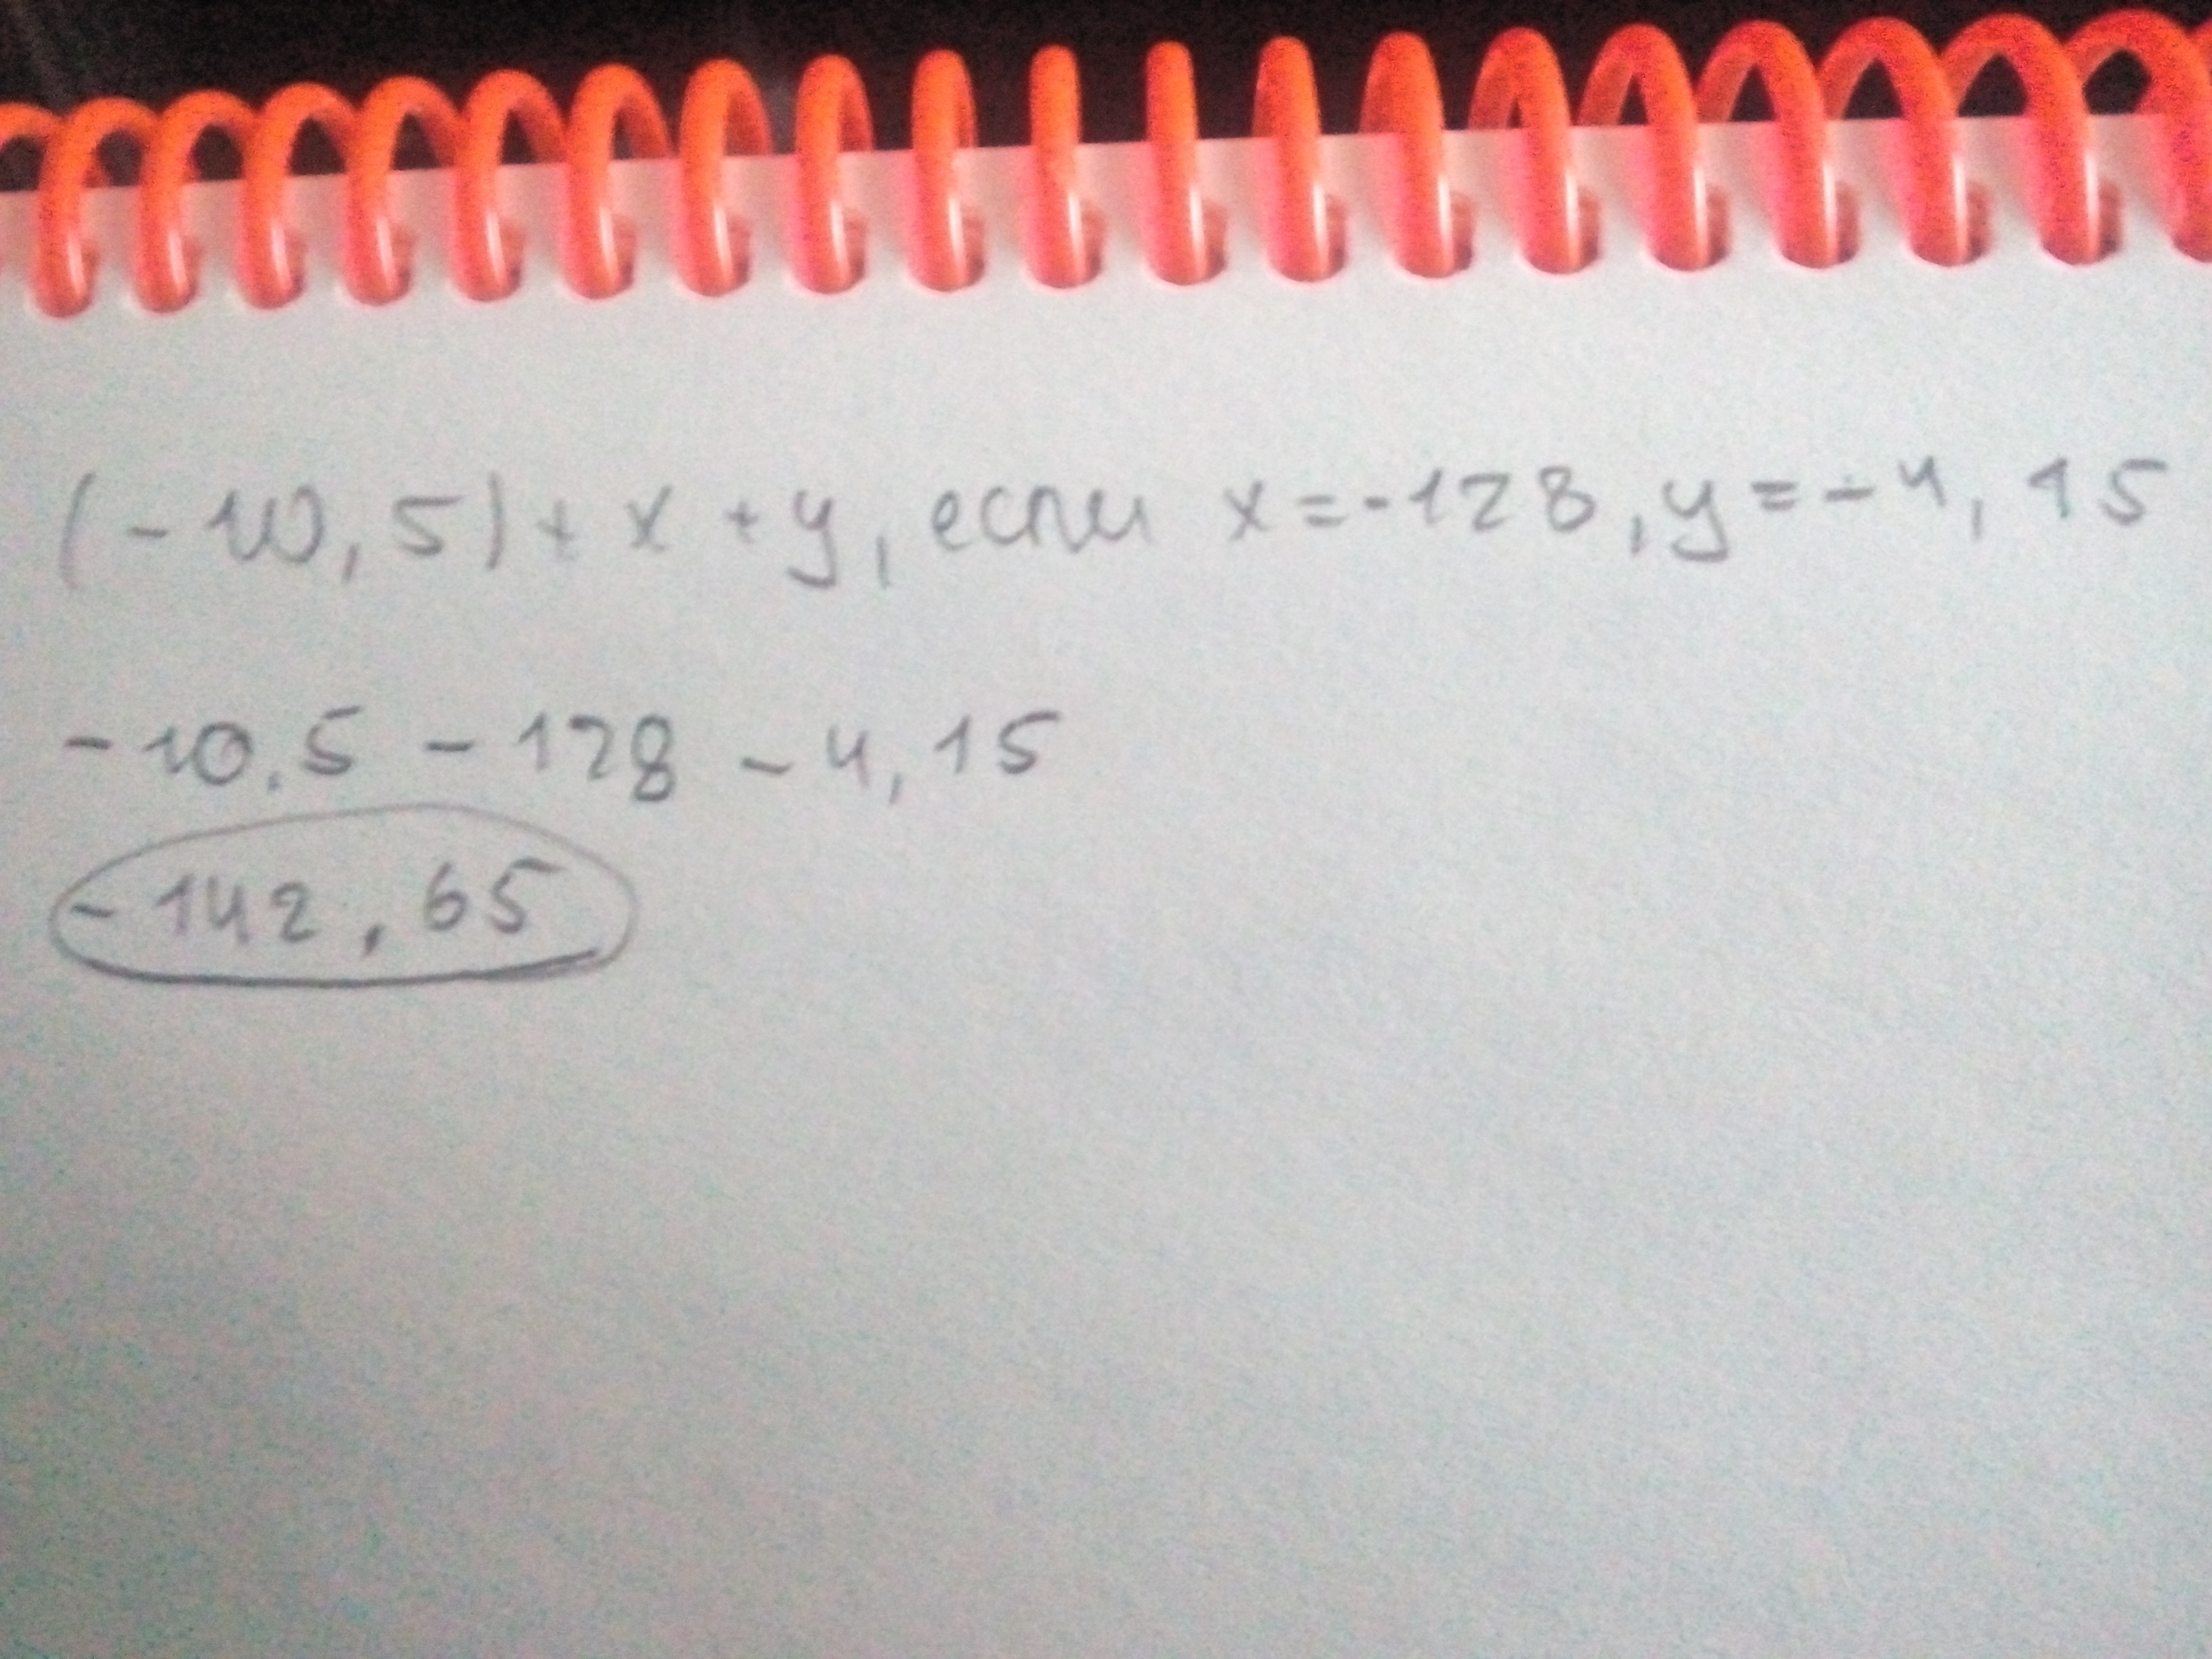 (-10,5)+x+y, если x=-128, y=-4,15
-10,5-128-4,15
-142,65